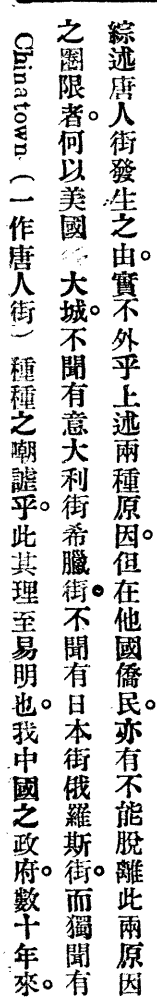 綜述唐人街發生之由。實不外乎上述兩種原因。但在他國僑民。亦有不能脫離此兩原因
之圈限者。何以美國大城。不聞有意大利街希臘街。不聞有日本街俄羅斯街。而獨聞有
Chinatown,(一作唐人街)種種之嘲謔乎。此其理至易明也。我中國之政府。數十年來。